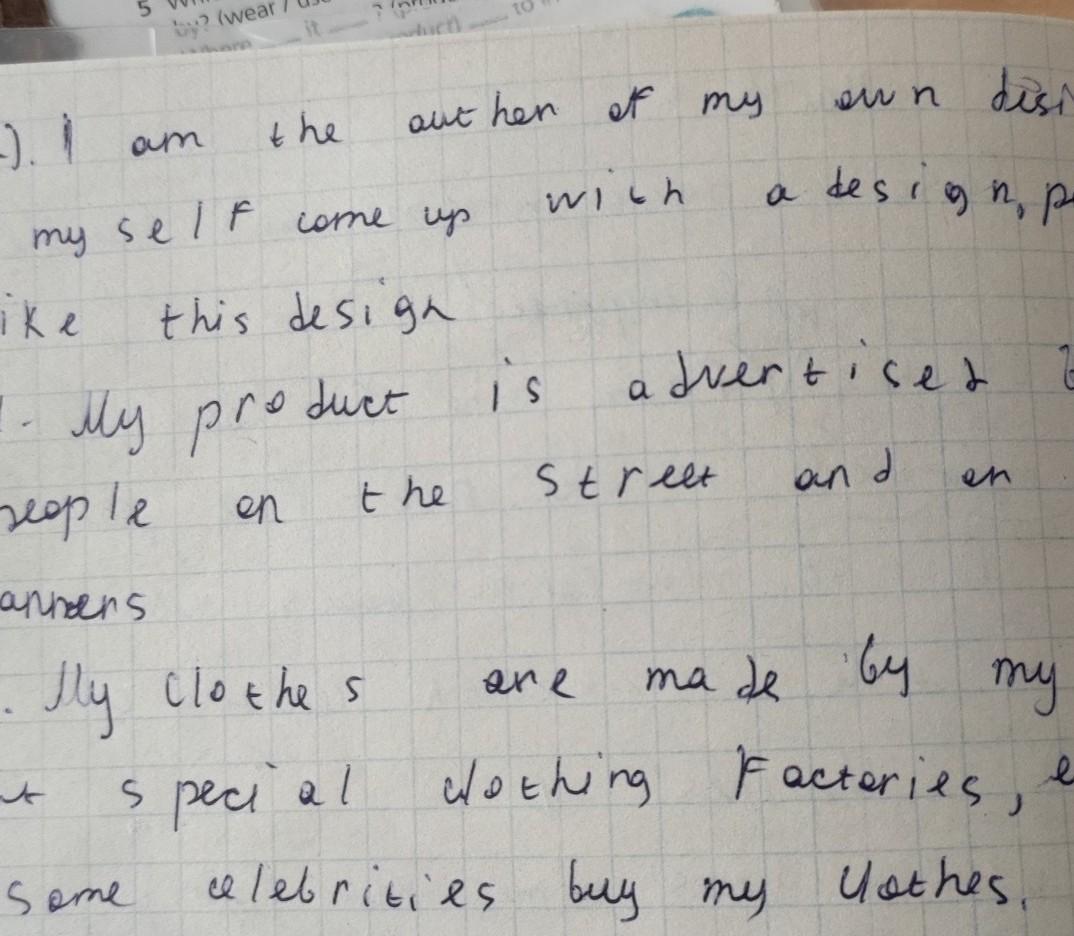 5
by? (wear /
it ? to
). I am the auther of my own desi
my self come up with a design, p
ike this design
. My product is advertised b
people on the street and on
anners
. My clothes are made by my
t special clothing Factories, e
some celebrities buy my clothes.